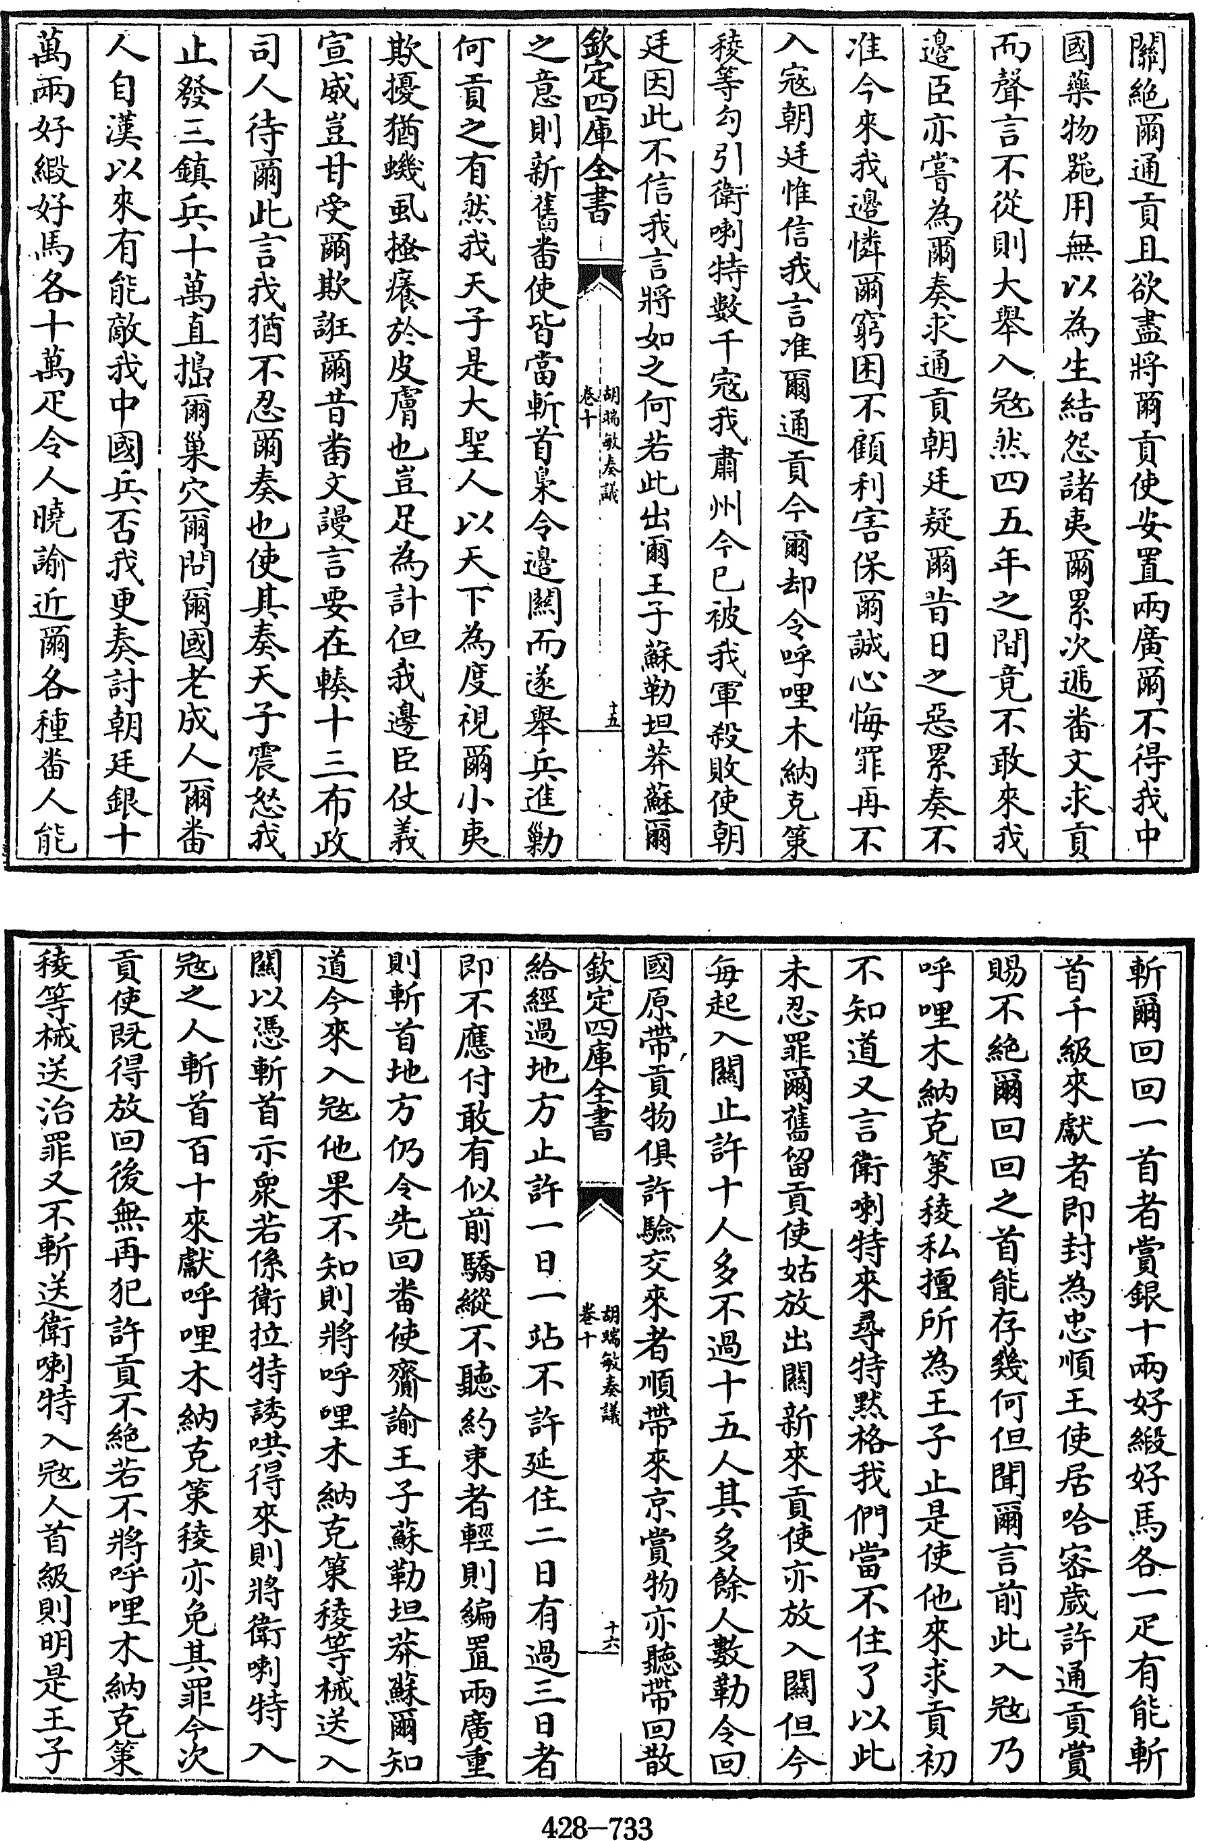 關絶爾通貢且欲盡將爾貢使安置兩廣爾不得我中
國藥物器用無以為生結怨諸夷爾累次遞畨文求貢
而聲言不從則大舉入冦然四五年之間竟不敢來我
邊臣亦嘗為爾奏求通貢朝廷疑爾昔日之惡累奏不
准今來我邊憐爾窮困不顧利害保爾誠心悔罪再不
入寇朝廷惟信我言准爾通貢今爾却令呼哩木納克策
稜等勾引衛喇特數千寇我肅州今已被我軍殺敗使朝
廷因此不信我言將如之何若此出爾王子蘇勒坦莽蘇爾
欽定四庫全書
胡端敏奏議
卷十
十五
之意則新舊畨使皆當斬首梟令邊關而遂舉兵進勦
何貢之有然我天子是大聖人以天下為度視爾小夷
欺擾猶蟣虱搔癢於皮膚也豈足為計但我邊臣仗義
宣威豈甘受爾欺誑爾昔畨文謾言要在輳十三布政
司人待爾此言我猶不忍爾奏也使其奏天子震怒我
止發三鎮兵十萬直搗爾巢穴爾問爾國老成人爾畨
人自漢以來有能敵我中國兵否我更奏討朝廷銀十
萬兩好緞好馬各十萬疋令人曉諭近爾各種畨人能
斬爾回回一首者賞銀十兩好緞好馬各一疋有能斬
首千級來獻者即封為忠順王使居哈密歲許通貢賞
賜不絶爾回回之首能存幾何但聞爾言前此入冦乃
呼哩木納克策稜私擅所為王子止是使他來求貢初
不知道又言衛喇特來尋特默格我們當不住了以此
未忍罪爾舊留貢使姑放出關新來貢使亦放入關但今
每起入關止許十人多不過十五人其多餘人數勒令回
國原帶貢物俱許驗交來者順帶來京賞物亦聽帶回散
欽定四庫全書
胡端敏奏議
卷十
十六
給經過地方止許一日一站不許延住二日有過三日者
即不應付敢有似前驕縱不聽約束者輕則編置兩廣重
則斬首地方仍令先回畨使齎諭王子蘇勒坦莽蘇爾知
道今來入冦他果不知則將呼哩木納克策稜等械送入
關以憑斬首示衆若係衛拉特誘哄得來則將衛喇特入
冦之人斬首百十來獻呼哩木納克策稜亦免其罪今次
貢使既得放回後無再犯許貢不絶若不將呼哩木納克策
稜等械送治罪又不斬送衛喇特入冦人首級則明是王子
428-733